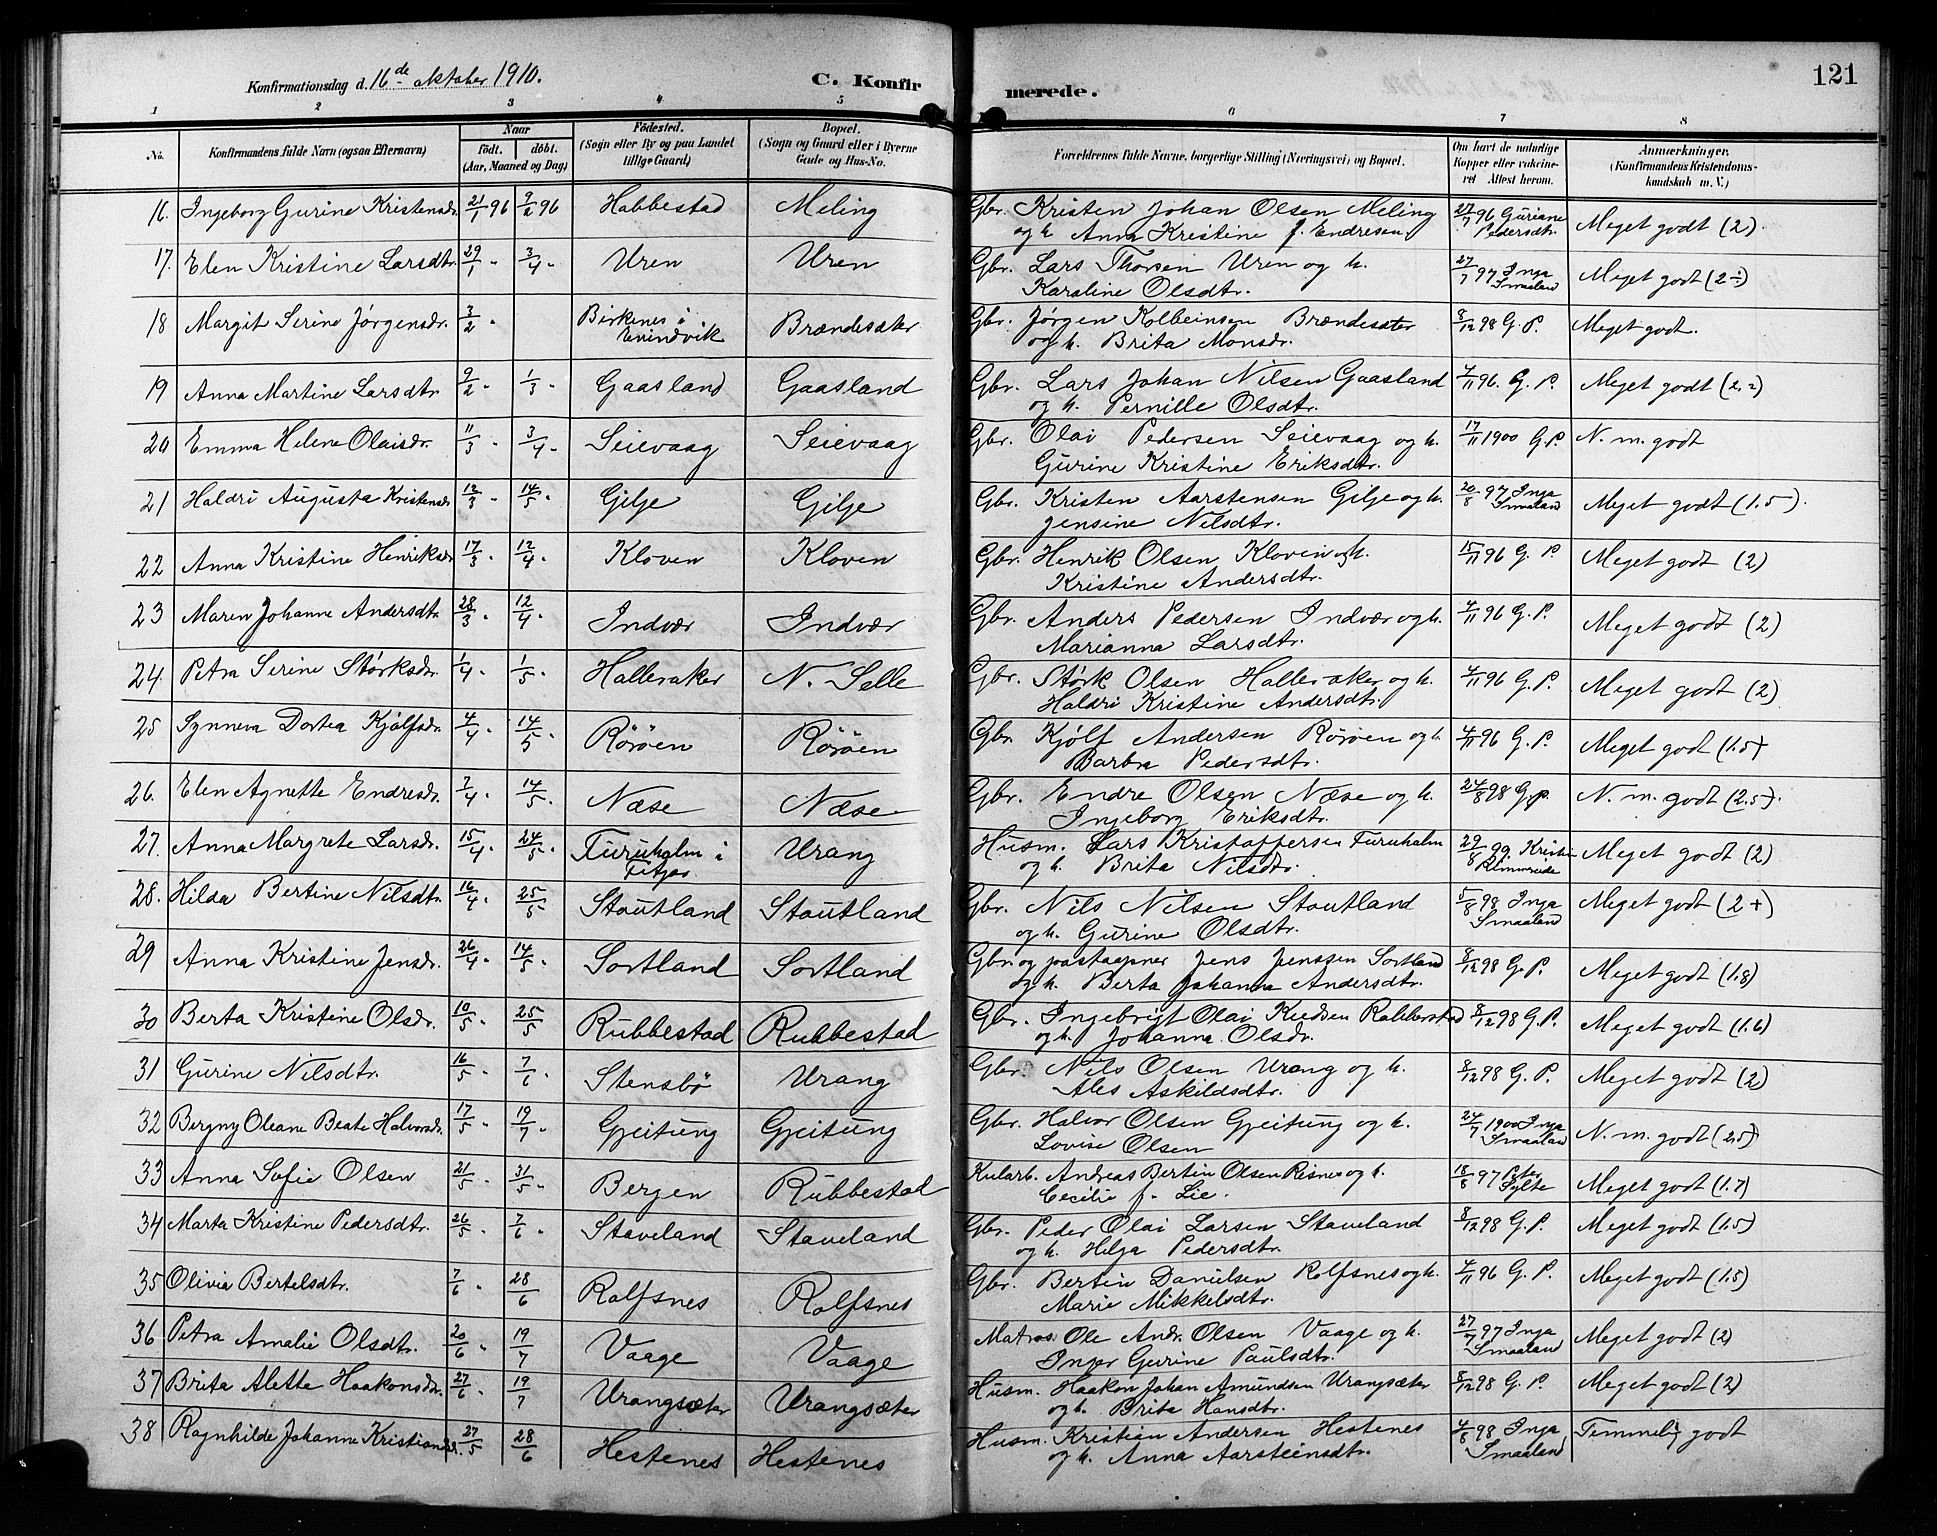 Konfirmationsdag d. 16de oktober 1910.
C. Konfirmerede.
121
1 2 3 4 5 6 7 8
No.
Konfirmandens fulde Navn (ogsaa Efternavn)
Naar
födt. döbt.
(Aar, Maaned og Dag)
Födested.
(Sogn eller By og paa Landet
tillige Gaard)
Bopæl.
(Sogn og Gaard eller i Byerne
Gade og Hus-No.
Forældrenes fulde Navne, borgerlige Stilling (Næringsvei) og Bopæl.
Om havt de naturlige
Kopper eller vakcine-
ret Attest herom.
Anmærkninger,
(Konfirmandens Kristendoms-
kundskab m. V.)
16. Ingeborg Gurine Kristensdr. 21/1 96 9/2 96 Habbestad Meling Gbr. Kristen Johan Olsen Meling 27/7 96 Guriane Meget godt (2).
og h. Anna Kristine f. Endresen Pedersdtr.
17. Elen Kristine Larsdtr. 29/1 " 3/4 " Uren Uren Gbr. Lars Thorsen Uren og h. 27/7 97 Inga Meget godt (2÷)
Karoline Olsdtr. Smaaland
18 Margit Serine Jørgensdr. 3/2 " Birkenes i Brændesæter Gbr. Jørgen Kolbeinsen Brændesæter 8/12 98 G. P. Meget godt.
Evindvik og h. Brita Monsdr.
19 Anna Martine Larsdtr. 9/2 " 1/3 " Gaasland Gaasland Gbr. Lars Johan Nilsen Gaasland 4/11 96. G. P. Meget godt (2,2)
og h. Pernille Olsdtr.
20 Emma Helene Olaisdr. 11/3 " 3/4 " Seievaag Seievaag Gbr. Olai Pedersen Seievaag og h. 17/11 1900 G. P. N. m. godt
Gurine Kristine Eriksdtr.
21 Haldri Augusta Kristensdr. 12/3 " 14/5 " Gilje Gilje Gbr. Kristen Aarstensen Gilje og h. 20/8 97 Inga Meget godt (1.5).
Jensine Nilsdtr. Smaaland
22 Anna Kristine Henriksdr. 17/3 " 12/4 " Kloven Kloven Gbr. Henrik Olsen Kloven og h. 15/11 96 G. P. Meget godt (2)
Kristine Andersdtr.
23 Maren Johanne Andersdtr. 28/3 " 12/4 " Indvær Indvær Gbr. Anders Pedersen Indvær og h. 4/11 96 G. P. Meget godt (2)
Marianna Larsdtr.
24. Petra Serine Størksdr. 1/4 " 1/5 " Halleraker N. Selle Gbr. Størk Olsen Halleraker og h. 4/11 96 G. P. Meget godt (2)
Haldri Kristine Andersdtr.
25 Synneva Dortea Kjølfsdr. 4/4 " 14/5 " Rørøen Rørøen Gbr. Kjølf Andersen Rørøen og h. 4/11 96 G. P. Meget godt (1.5)
Barbra Pedersdtr.
26. Elen Agnette Endresdr. 7/4 " 14/5 " Næse Næse Gbr. Endre Olsen Næse og h. 24/8 98 G. P. N. m. godt (2.5).
Ingeborg Eriksdtr.
27. Anna Margrete Larsdr. 15/4 " 24/5 " Furuholm i Urang Husm. Lars Kristoffersen Furuholm 29/8 99 Meget godt (2)
Fitjar og h. Brita Nilsdtr.
28. Hilda Bertine Nilsdtr. 16/4 " 25/5 Stoutland Stoutland Gbr. Nils Nilsen Stoutland 5/8 98 Inga Meget godt (2+)
og h. Gurine Olsdtr. Smaaland
29 Anna Kristine Jensdr. 26/4 " 14/5 " Sortland Sortland Gbr. og postaapner Jens Jenssen Sortland 8/12 98 G. P. Meget godt (1.8)
og h. Berta Johanna Andersdtr.
30 Berta Kristine Olsdr. 10/5 " 25/5 Rubbestad Rubbestad Gbr. Ingebrigt Olai Knudsen Rubbestad 8/12 98 G. P. Meget godt (1.6)
og h. Johanna Olsdr.
31 Gurine Nilsdtr. 16/5 " 7/6 " Stensbø Urang Gbr. Nils Olsen Urang og h. 8/12 98 G. P. Meget godt (2)
Ales Askildsdtr.
32 Bergny Oleane Beate Halvorsdr. 17/5 " 19/7 " Gjeitung Gjeitung Gbr. Halvor Olsen Gjeitung og h. 24/7 1900 Inga N. m. godt (2.5)
Lovise Olsen Smaaland
33 Anna Sofie Olsen 21/5 " 31/5 " Bergen Rubbestad Kularb. Andreas Bertin Olsen Risnes og h. 18/8 97 Peter Meget godt (1.7)
Cecilie f. Lie. Sylte
34 Marta Kristine Pedersdtr. 26/5 " 7/6 " Staveland Staveland Gbr. Peder Olai Larsen Staveland 8/12 98 G. P. Meget godt (1.5)
og h. Helga Pedersdtr.
35 Olivia Bertelsdtr. 7/6 " 28/6 Rolfsnes Rolfsnes Gbr. Bertin Danielsen Rolfsnes og h. 4/11 96 G. P. Meget godt (1.5)
Marie Mikkelsdtr.
36 Petra Amalie Olsdtr. 20/6 " 19/7 Vaage Vaage Matros Ole Andr. Olsen Vaage og h. 27/7 97 Inga Meget godt (2)
Inger Gurine Paulsdtr. Smaaland
37 Brita Alette Haakonsdr. 27/6 " 19/7 Urangsæter Urangsæter Husm. Haakon Johan Amundsen Urangsæter 8/12 98 G. P. Meget godt (2)
og h. Brita Hansdtr.
38 Ragnhilde Johanne Kristiansdr. 27/5 28/6 Hestenes Hestenes Husm. Kristian Andersen Hestenes 4/8 98 Inga Temmelig godt
og h. Anna Aarsteinsdtr. Smaaland